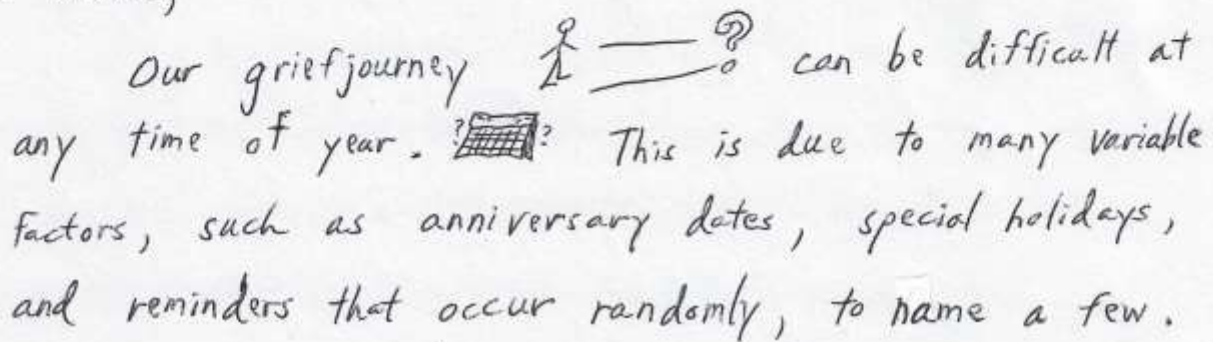 Our grief journey ? can be difficult at
any time of year. ? ? This is due to many variable
factors, such as anniversary dates, special holidays,
and reminders that occur randomly, to name a few.